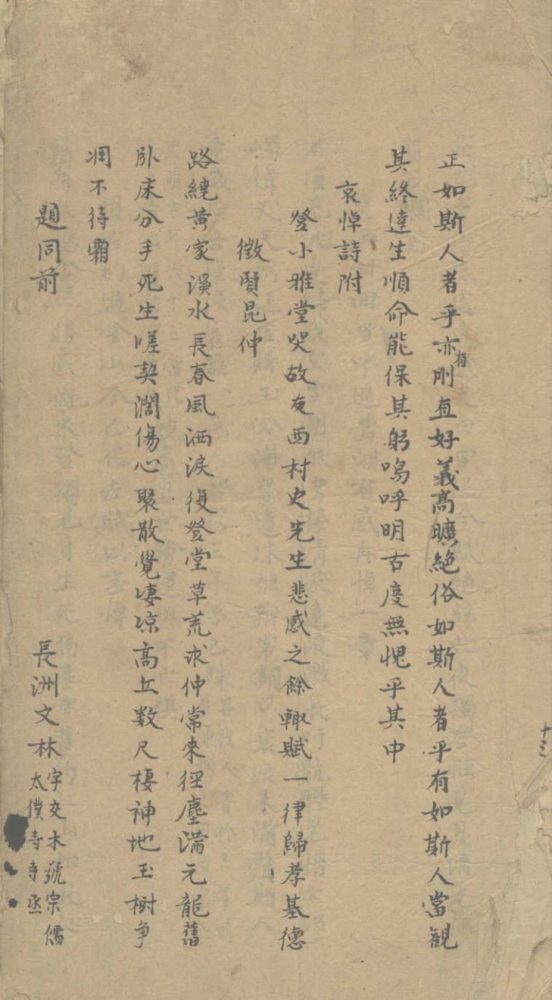 十三
正如斯人者乎亦有剛直好義高曠絶俗如斯人者乎有如斯人當觀
其終達生順命能保其躬嗚呼明古度無愧乎其中
哀悼詩附
登小雅堂哭故友西村史先生悲感之餘輙賦一律歸孝基德
徵賢昆仲
路繞黄家溪水長春風洒淚復登堂草荒求仲常來徑塵滿元龍舊
卧床分手死生嗟契濶傷心聚散覺凄凉高丘数尺棲神地玉樹爭
凋不待霜
題同前
長洲文林字交木號宗儒
太僕寺寺丞